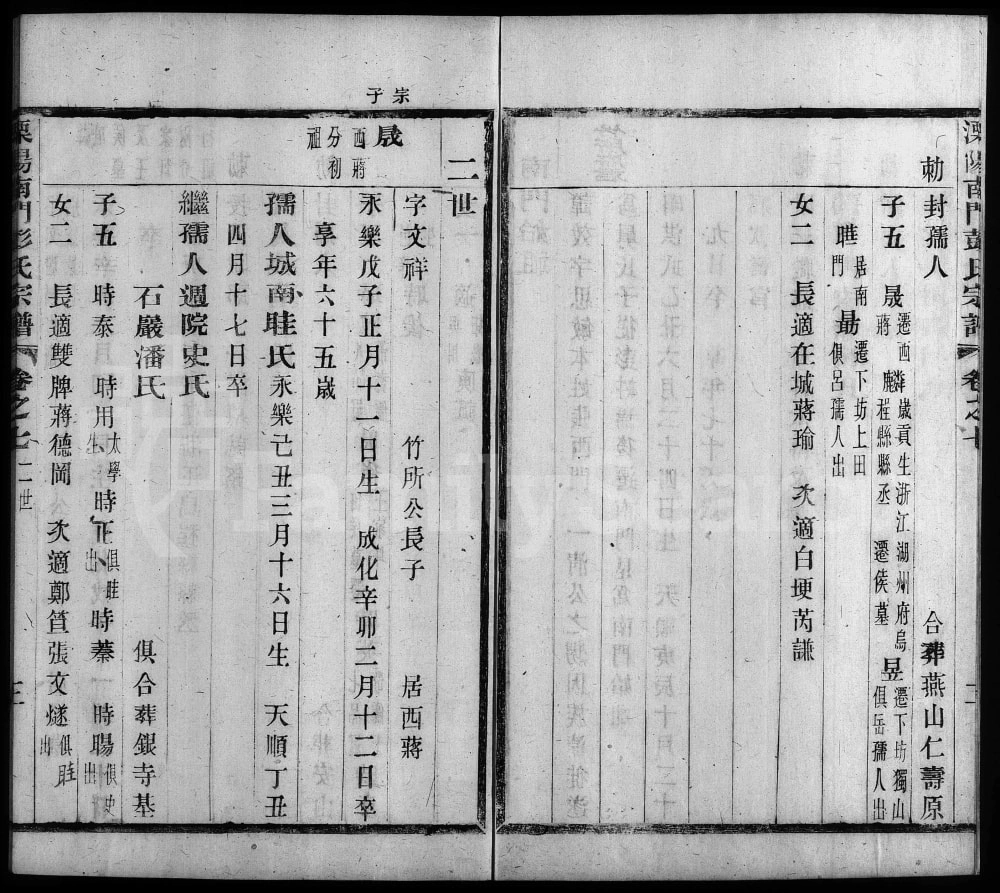 溧陽南門彭氏宗譜 卷之七
勅封孺人 合葬燕山仁壽原
子五 晟 遷西蔣 麟 歲貢生浙江湖州府烏程縣縣丞 遷侯墓 昱 遷下坊獨山 俱岳孺人出
居南門 勗 遷下坊上田 俱呂孺人出
女二 長適在城蔣瑜 次適白埂芮謙
二世
宗子
晟 西蔣分初祖
字文祥 竹所公長子 居西蔣
永樂戊子正月十一日生 成化辛卯二月十二日卒
享年六十五歲
孺人城南眭氏永樂己丑三月十六日生 天順丁丑
四月十七日卒
繼孺人週院史氏
石巖潘氏 俱合葬銀寺基
子五 時泰 時用 太學生 時正 俱眭出 時蓁 時暘 俱史出
女二 長適雙牌蔣德岡 次適鄭笪張文燧 俱眭出
溧陽南門彭氏宗譜 卷之七 二世 三